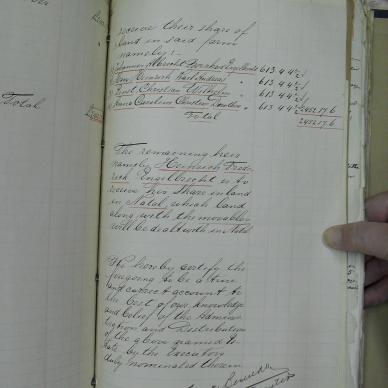 Total
receive their share of
land in said farm
namely :-
Johannes Albrecht Bernhard Engelbrecht 613 4 4
Heinrich Carl Andreas " 613 4 4
Ernst Christian Wilhelm " 613 4 4
Anna Carolina " 613 4 4 2452 17.6
Total 2452 17.6
The remaining heir
namely Heinrich Frede
rick Engelbrecht is to
receive his share in land
in Natal, which land
along with the movables
will be dealt with in Natal
We hereby certify the
foregoing to be a true
and correct account to
the best of our knowledge
and belief of the Adminis
tration and Distribution
of the above named Es-
tate by the Executors
duly nominated therein